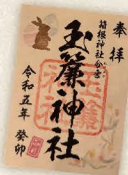 奉拝
箱根神社分霊
玉簾神社
令和五年
癸卯